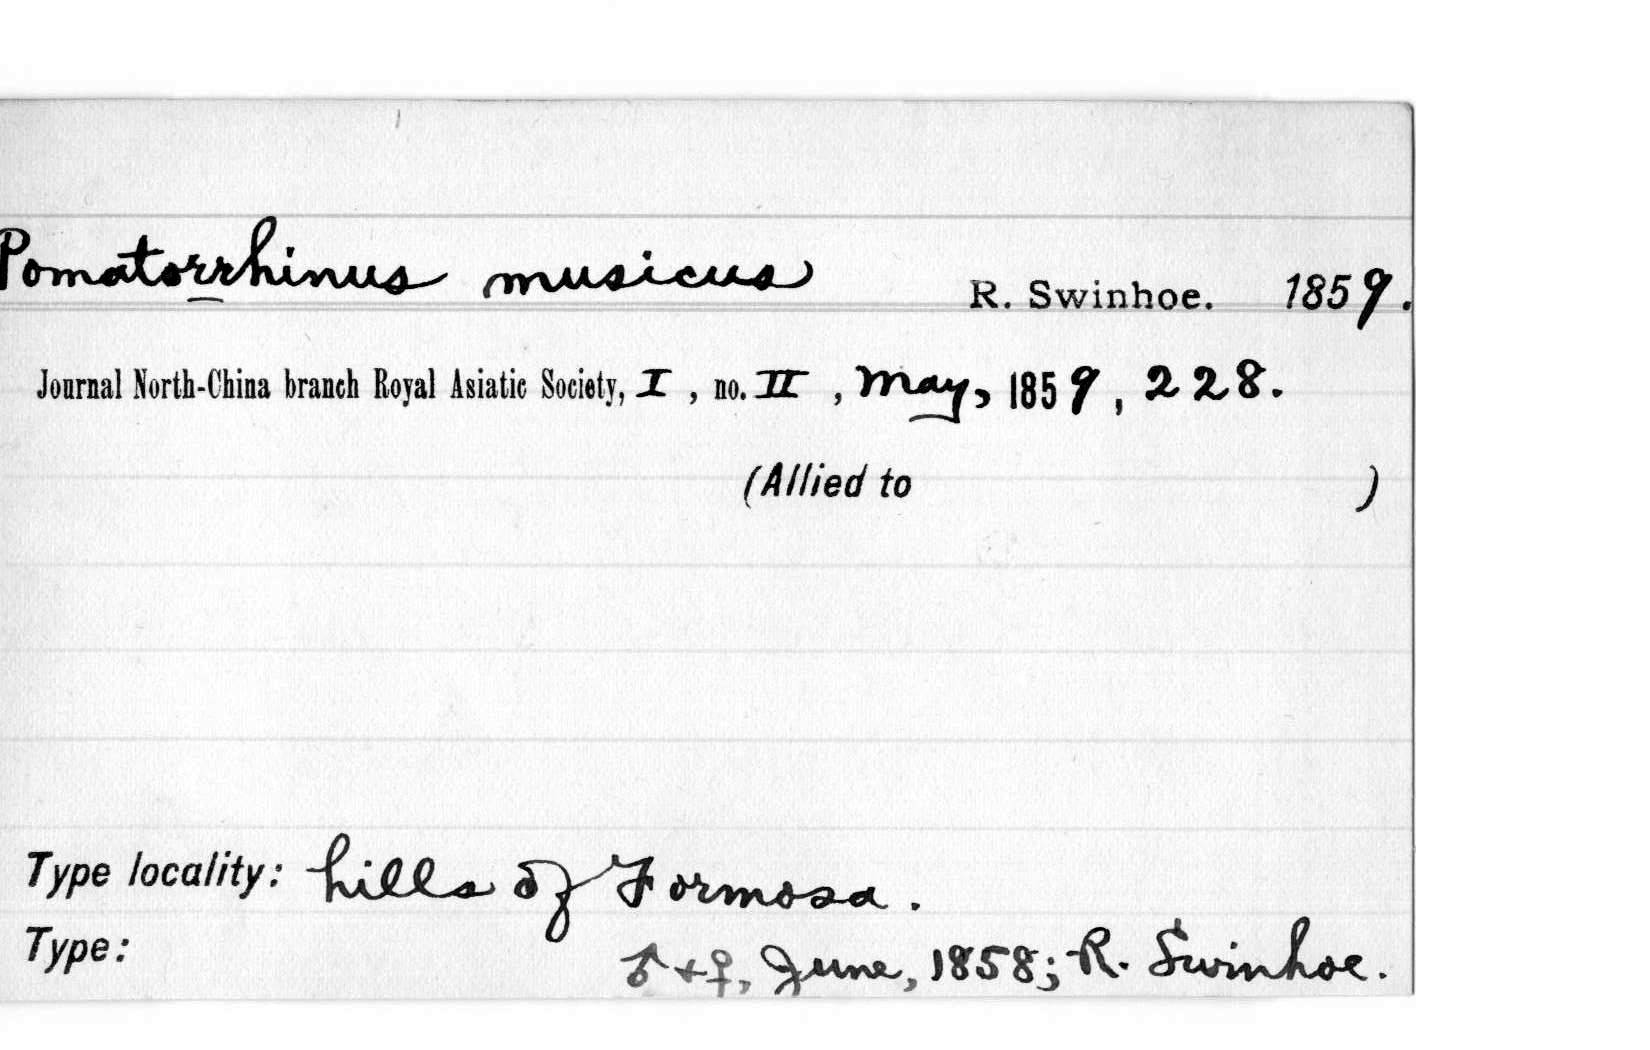 Pomatorrhinus musicus R. Swinhoe. 1859.
Journal North-China branch Royal Asiatic Society, I, no. II, May, 1859, 228.
(Allied to )
Type locality: hills of Formosa.
Type: ♂+♀, June, 1858; R. Swinhoe.